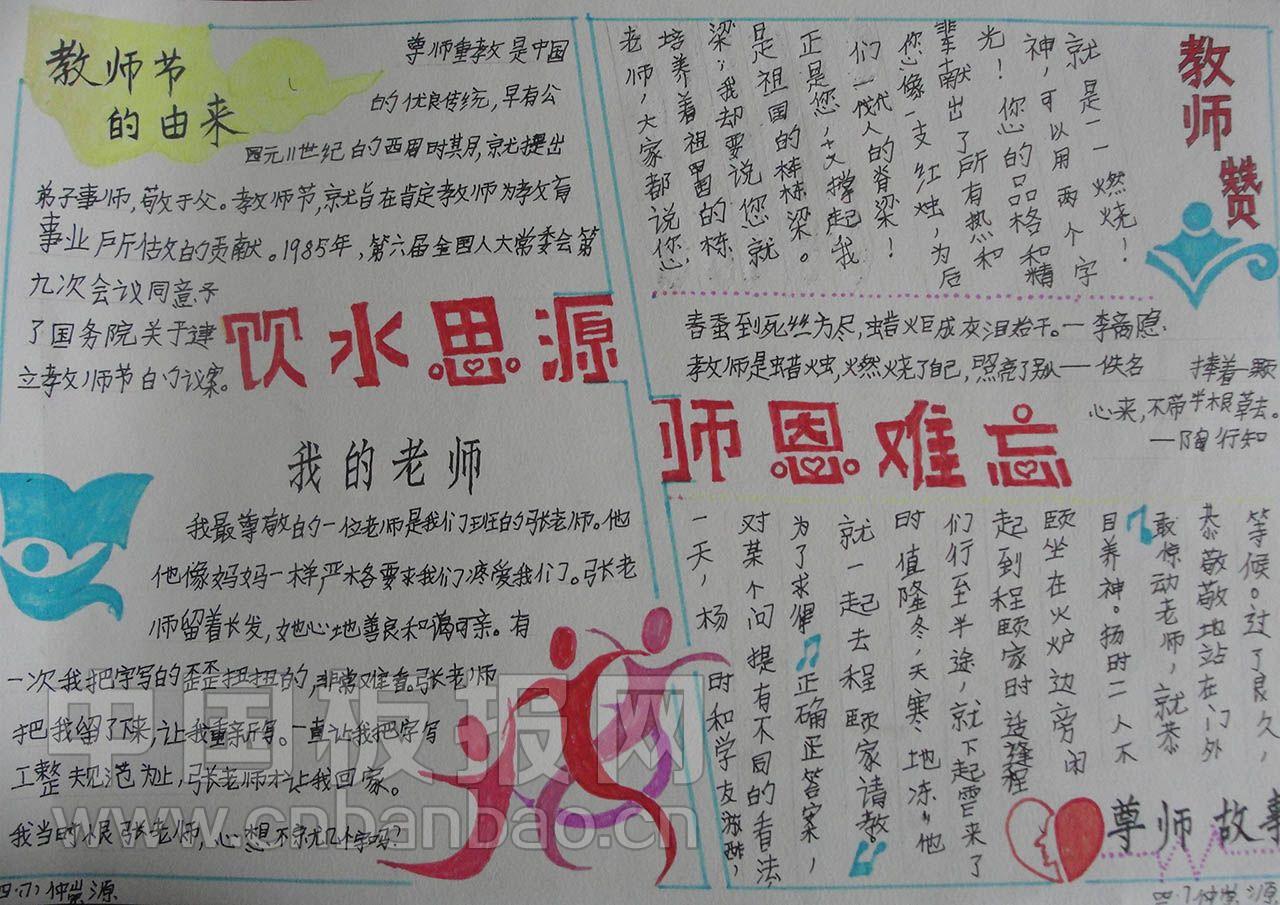 教师节
的由来
尊师重教是中国
的优良传统，早有公
元11世纪的西周时期，就提出
弟子事师，敬于父。教师节，就旨在肯定教师为教育
事业所做的贡献。1985年，第六届全国人大常委会第
九次会议同意了
了国务院关于建
立教师节的议案。
饮水思源
师恩难忘
我的老师
我最尊敬的一位老师是我们班的张老师。他
他像妈妈一样严格要求我们疼爱我们。张老
师留着长发，她心地善良和谒可亲。有
一次我把字写的歪歪扭扭的，非常难看。张老师
把我留了下来，让我重新写。一直让我把字写
工整 规范为止，张老师才让我回家。
我当时恨张老师，心想不就几个字吗？
四·(7) 仲崇源
教师赞
老师，大家都说您
培养着祖国的栋
梁；我却要说您就
是祖国的栋梁。
正是您，支撑起我
们一代代人的脊梁！
您像一支红烛，为后
辈献出了所有热和
光！您的品格和精
神，可以用两个字
就是——燃烧！
春蚕到死丝方尽，蜡炬成灰泪始干。—李商隐
教师是蜡烛，燃烧了自己，照亮了别人——佚名
捧着一颗
心来，不带半根草去。
—陶行知
尊师故事
一天，杨时和学友游酢，
对某个问提有不同的看法，
为了求得正确正答案，
就一起去程颐家请教。
时值隆冬，天寒地冻。他
们行至半途，就下起雪来了
起到程颐家时适逢程
颐坐在火炉边旁闭
目养神。扬时二人不
敢惊动老师，就恭
恭敬敬地站在门外
等候。过了良久，
四·7 仲崇源
中国板报网
www.cnbanbao.cn